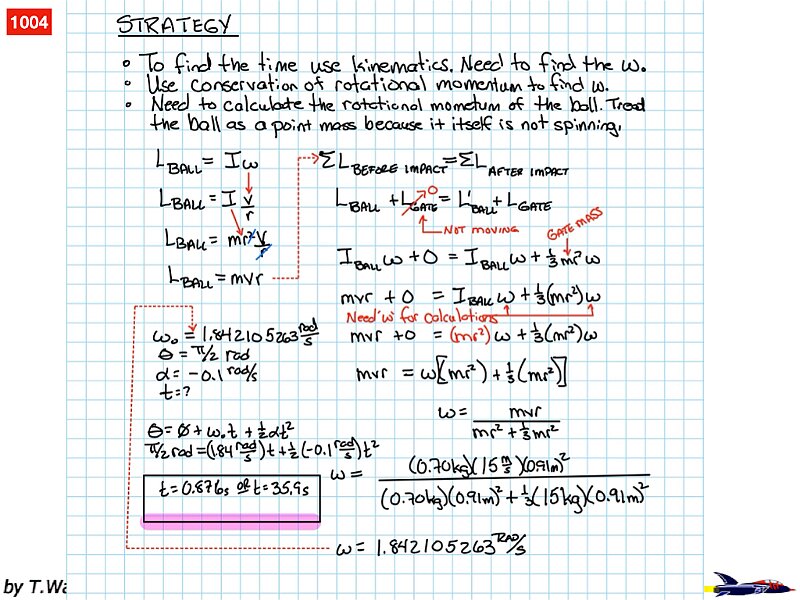 1004
STRATEGY
• To find the time use kinematics. Need to find the ω.
• Use conservation of rotational momentum to find ω.
• Need to calculate the rotational momentum of the ball. Treat
the ball as a point mass because it itself is not spinning.
L_BALL = Iω
L_BALL = I v/r
L_BALL = mr² v/r
L_BALL = mvr
ΣL_BEFORE IMPACT = ΣL_AFTER IMPACT
L_BALL + L_GATE = L'_BALL + L_GATE
0
NOT MOVING
GATE MASS
I_BALL ω + 0 = I_BALL ω + 1/3 mr² ω
mvr + 0 = I_BALL ω + 1/3(mr²)ω
Need 'ω' for calculations
mvr + 0 = (mr²)ω + 1/3(mr²)ω
mvr = ω[(mr²) + 1/3(mr²)]
ω = mvr / (mr² + 1/3 mr²)
ω = (0.70kg)(15 m/s)(0.91m)² / (0.70kg)(0.91m)² + 1/3(15kg)(0.91m)²
ω = 1.842105263 RAD/s
ω₀ = 1.842105263 rad/s
θ = π/2 rad
α = -0.1 rad/s
t = ?
θ = ø + ω₀t + 1/2 αt²
π/2 rad = (1.84 rad/s)t + 1/2(-0.1 rad/s)t²
t = 0.876s or t = 35.9s
by T.Wa